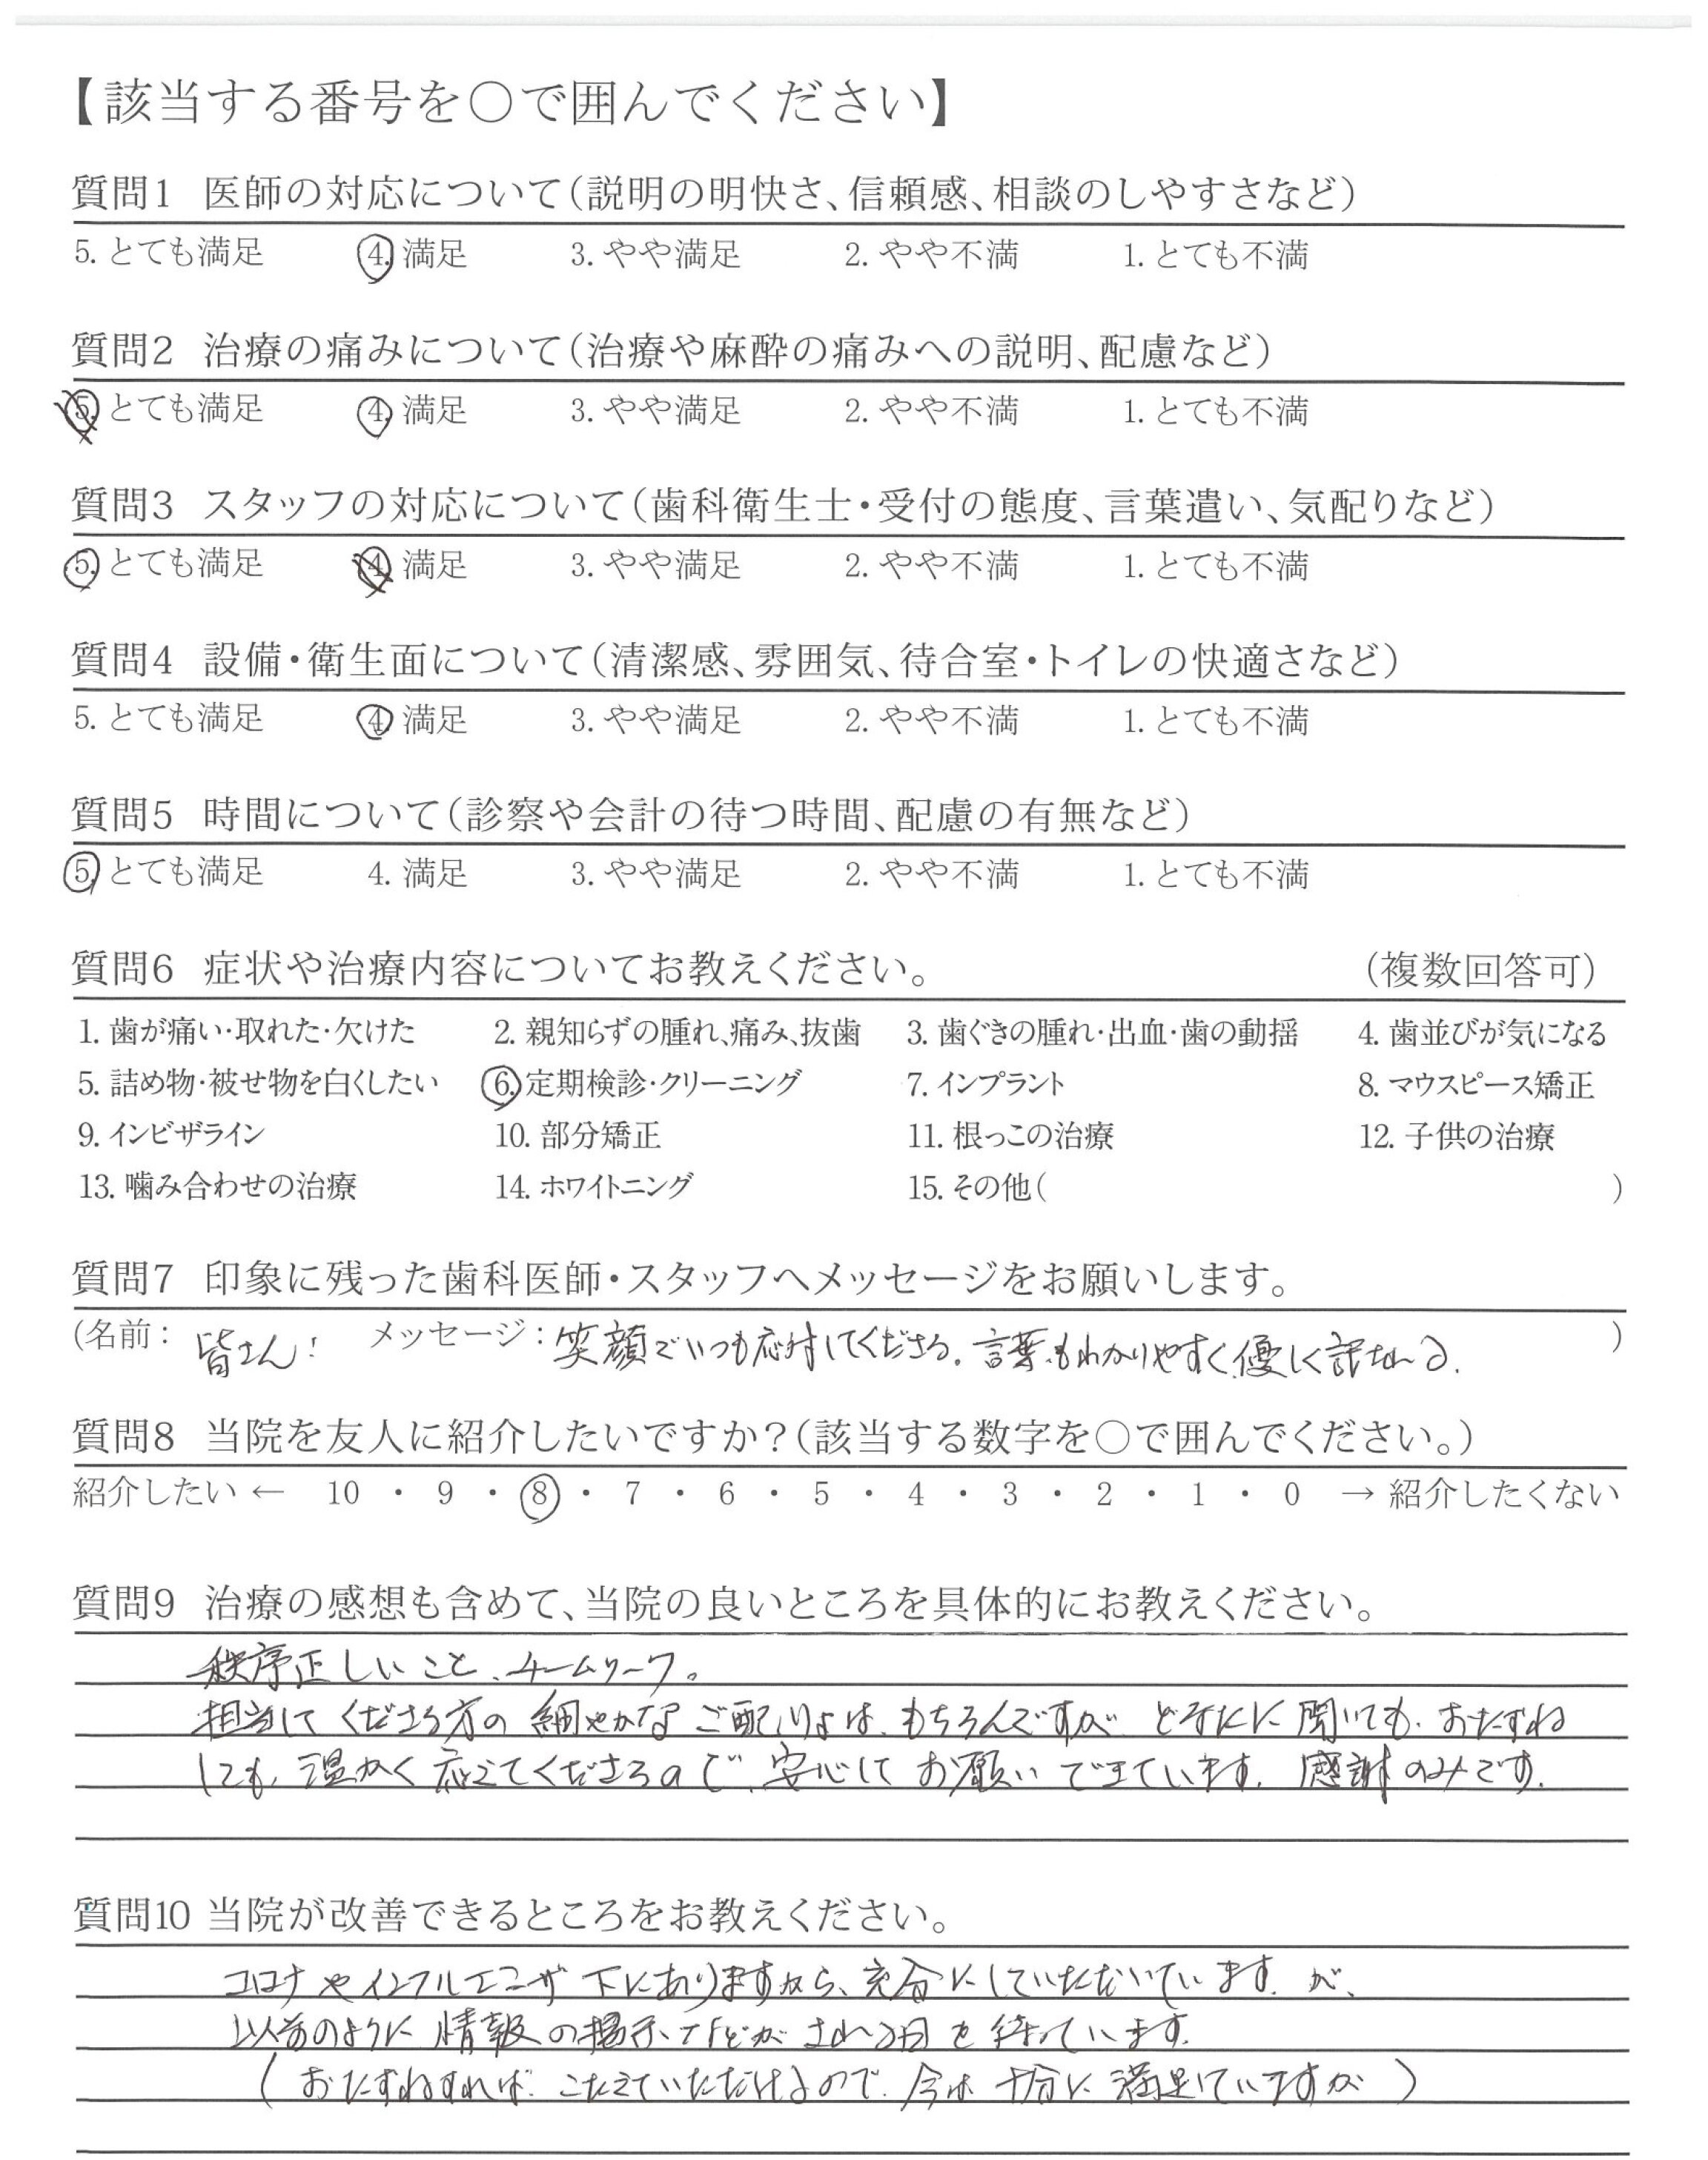 【該当する番号を○で囲んでください】
質問1 医師の対応について(説明の明快さ、信頼感、相談のしやすさなど)
5. とても満足 4. 満足 3. やや満足 2. やや不満 1. とても不満
質問2 治療の痛みについて(治療や麻酔の痛みへの説明、配慮など)
5. とても満足 4. 満足 3. やや満足 2. やや不満 1. とても不満
質問3 スタッフの対応について(歯科衛生士・受付の態度、言葉遣い、気配りなど)
5. とても満足 4. 満足 3. やや満足 2. やや不満 1. とても不満
質問4 設備・衛生面について(清潔感、雰囲気、待合室・トイレの快適さなど)
5. とても満足 4. 満足 3. やや満足 2. やや不満 1. とても不満
質問5 時間について(診察や会計の待つ時間、配慮の有無など)
5. とても満足 4. 満足 3. やや満足 2. やや不満 1. とても不満
質問6 症状や治療内容についてお教えください。 (複数回答可)
1. 歯が痛い・取れた・欠けた 2. 親知らずの腫れ、痛み、抜歯 3. 歯ぐきの腫れ・出血・歯の動揺 4. 歯並びが気になる
5. 詰め物・被せ物を白くしたい 6. 定期検診・クリーニング 7. インプラント 8. マウスピース矯正
9. インビザライン 10. 部分矯正 11. 根っこの治療 12. 子供の治療
13. 噛み合わせの治療 14. ホワイトニング 15. その他( )
質問7 印象に残った歯科医師・スタッフへメッセージをお願いします。
(名前: 皆さん! メッセージ: 笑顔でいつも応対してくださる。言葉もわかりやすく、優しく話される。 )
質問8 当院を友人に紹介したいですか?(該当する数字を○で囲んでください。)
紹介したい ← 10 ・ 9 ・ 8 ・ 7 ・ 6 ・ 5 ・ 4 ・ 3 ・ 2 ・ 1 ・ 0 → 紹介したくない
質問9 治療の感想も含めて、当院の良いところを具体的にお教えください。
秩序正しいこと、チームワーク。
担当してくださる方の細やかなご配りょは、もちろんですが どなたに聞いても、おたずね
しても、温かく応えてくださるので、安心してお願いできています。感謝のみです。
質問10 当院が改善できるところをお教えください。
コロナやインフルエンザ下にありますから、充分にしていただいています。が、
以前のように情報の掲示などがされる日を待っています。
(おたずねすれば、こたえていただけるので、今は十分に満足していますが)